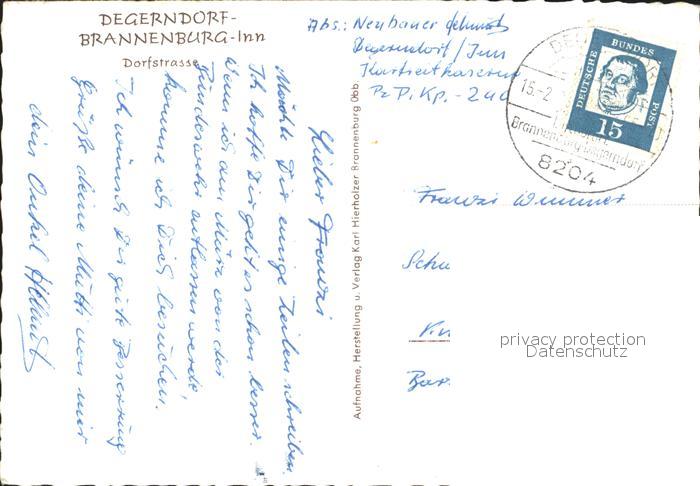 DEGERNDORF-
BRANNENBURG-Inn
Dorfstrasse
Lieber Franzi
Möchte Dir einige Zeilen schreiben.
Ich hoffe Dir geht es schon besser.
Wenn ich am März von der
Bundeswehr entlassen werde,
komme ich Dich besuchen.
Ich wünsch Dir gute Besserung
Grüße deine Mutti von mir
dein Onkel
Aufnahme, Herstellung u. Verlag Karl Hierholzer Brannenburg Obb.
Abs.: Neubauer
Degerndorf/Inn
Karfreitkaserne
Pz. Pi. Kp. - 240
DEUTSCHE BUNDESPOST
15
15.-2
Brannenburg-Degerndorf
8204
Franzi Wimmer
Schu
Bar
privacy protection
Datenschutz